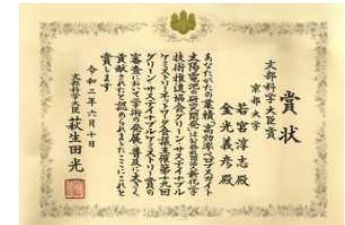 賞状
文部科学大臣賞
京都大学
若宮淳志殿
金光義彦殿
あなたがたの業績「高効率ペロブスカイト
太陽電池の研究開発」は公益社団法人新化学
技術推進協会グリーン・サステイナブル
ケミストリーネットワーク会議主催第十九回
グリーン・サステイナブルケミストリー賞の
審査において学術の発展・普及に大きく
貢献されたと認められましたここにこれを
賞します
令和二年六月十日
文部科学大臣 萩生田光一